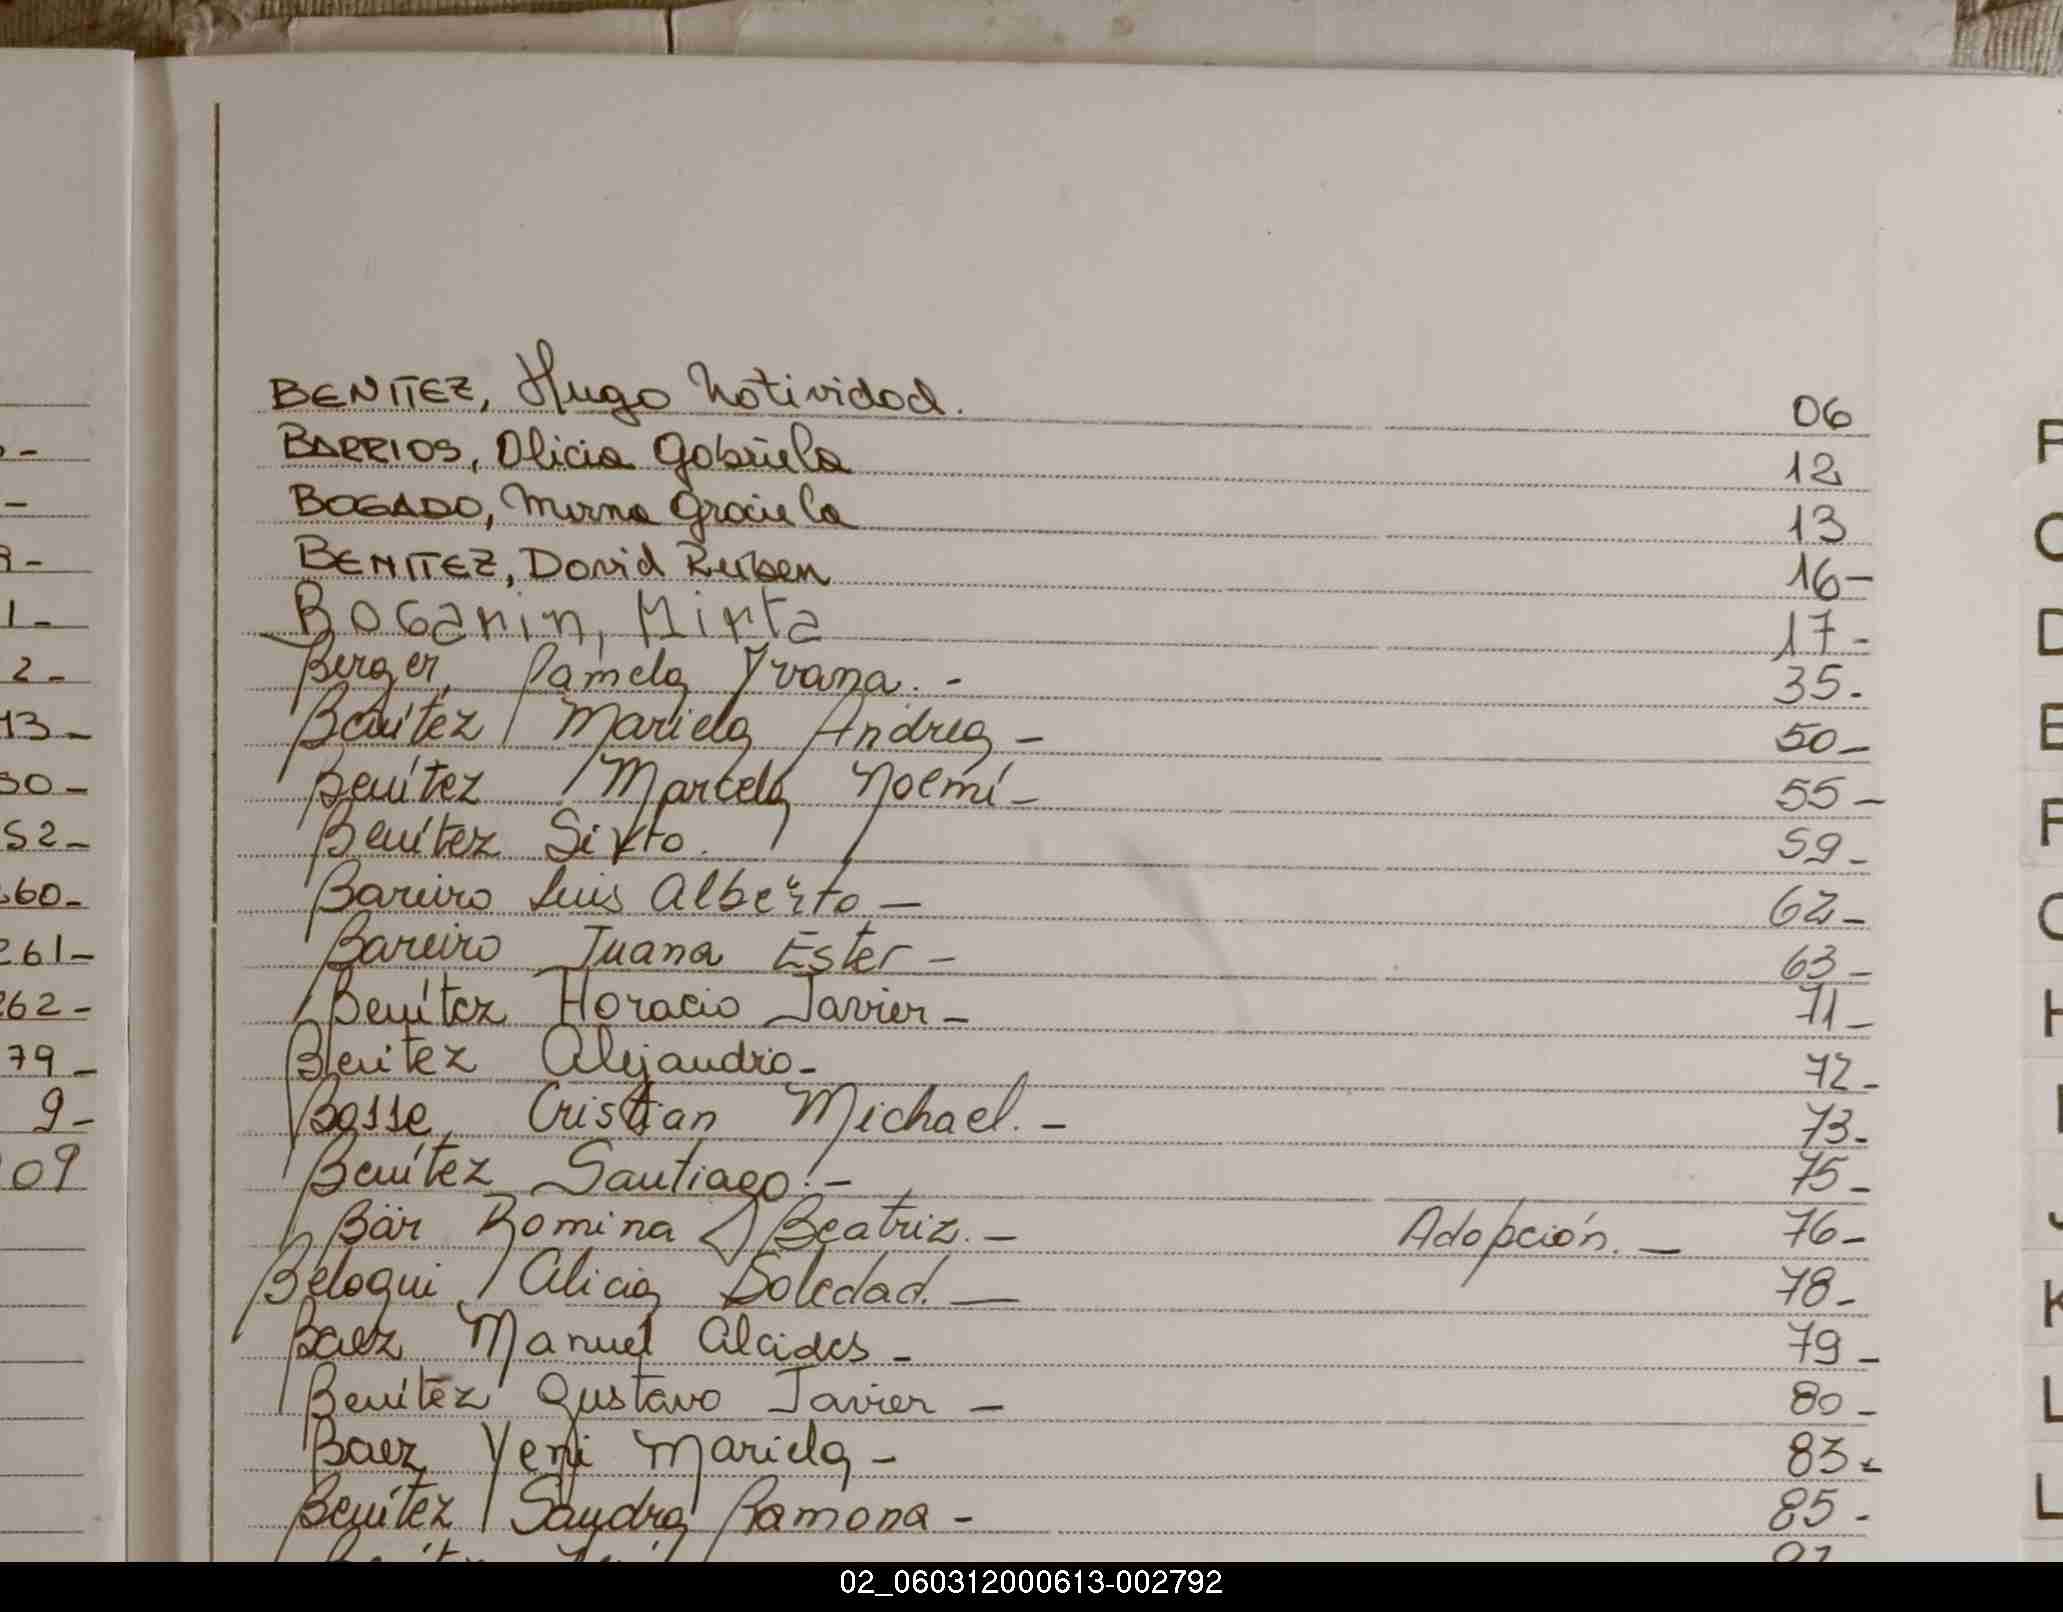 BENITEZ, Hugo Natividad. 06
BARRIOS, Alicia Gabriela 12
BOGADO, Mirna Graciela 13
BENITEZ, David Ruben 16-
Boganin, Mirta 17-
Berger, Pamela Yvana.- 35.
Benítez Mariela Andrea - 50-
Benítez Marcela Noemí - 55-
Benítez Sixto. 59-
Bareiro Luis Alberto - 62-
Bareiro Juana Ester - 63-
Benítez Horacio Javier - 71-
Benitez Alejandro- 72-
Bosse, Cristian Michael.- 73-
Benítez Santiago.- 75-
Bär Romina Beatriz.- Adopción.- 76-
Beloqui Alicia Soledad.- 78-
Baez Manuel Alcides - 79-
Benítez Gustavo Javier - 80-
Baez Yeni Mariela - 83-
Benítez Sandra Ramona - 85-
1-
2-
13-
30-
52-
60-
261-
262-
79-
9-
09
D
E
F
H
J
K
L
02_060312000613-002792